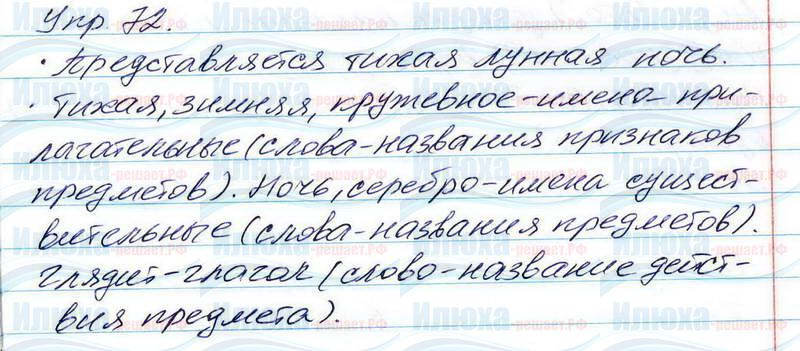 Упр 72.
· Представляется тихая лунная ночь.
· Тихая, зимняя, кружевное-имена при-
лагательные (слова-названия признаков
предметов). Ночь, серебро-имена сущест-
вительные (слова-названия предметов).
Глядит-глагол (слово-название дейст-
вия предмета).